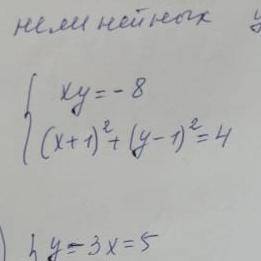 нелинейных у
xy = -8
(x+1)² + (y-1)² = 4
) { y - 3x = 5